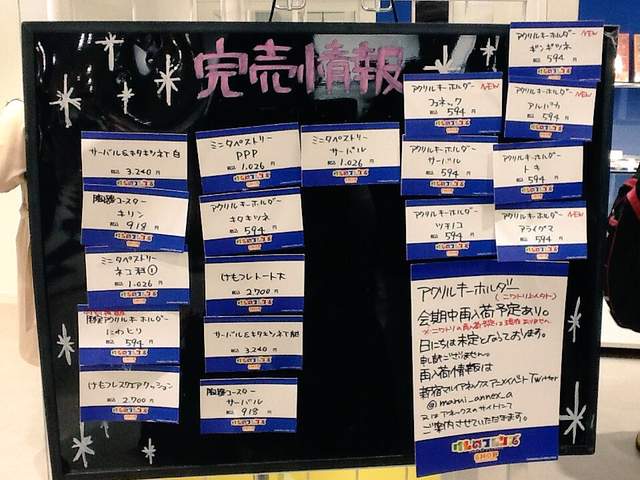 完売情報
サーバル&キタキツネT 白
税込 3,240 円
陶器コースター
キリン
税込 918 円
ミニタペストリー
ネコ科①
税込 1,026 円
アクリルキーホルダー
にわとり
税込 594 円
けもフレスクエアクッション
税込 2,700 円
ミニタペストリー
PPP
税込 1,026 円
アクリルキーホルダー
キタキツネ
税込 594 円
けもフレトート 大
税込 2,700 円
サーバル&キタキツネT 紺
税込 3,240 円
陶器コースター
サーバル
税込 918 円
ミニタペストリー
サーバル
税込 1,026 円
アクリルキーホルダー NEW
フェネック
税込 594 円
アクリルキーホルダー
サーバル
税込 594 円
アクリルキーホルダー
ツチノコ
税込 594 円
アクリルキーホルダー NEW
ギンギツネ
税込 594 円
アクリルキーホルダー NEW
アルパカ
税込 594 円
アクリルキーホルダー
トキ
税込 594 円
アクリルキーホルダー NEW
アライグマ
税込 594 円
アクリルキーホルダー
(ニワトリふくめて)
会期中再入荷予定あり。
※ニワトリの再入荷予定は現在ありません
日にちは未定となっております。
申し訳ございません。
再入荷情報は
新宿マルイアネックスアニメイベントTwitter
@marui_annex_a
又はアネックスのサイトにて
ご案内させていただきます。
SHOP